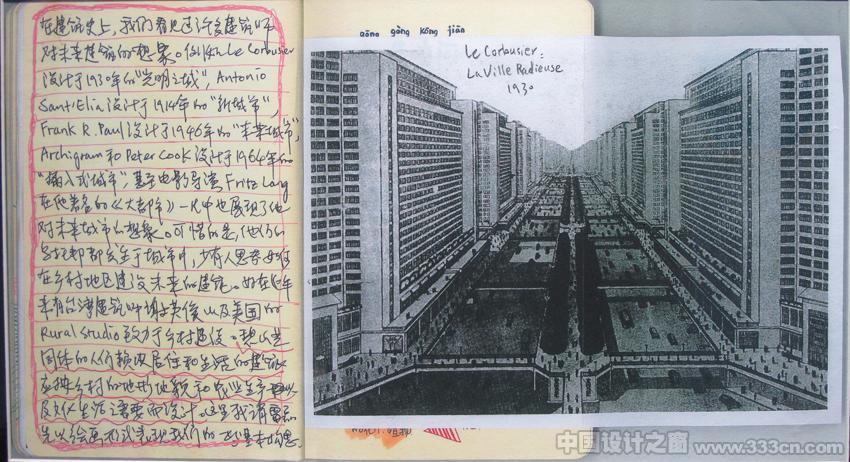 在建筑史上，我们看见过许多建筑师
对未来建筑的想象。例如Le Corbusier
设计于1930年的“光明之城”，Antonio
Sant'Elia设计于1914年的“新城市”，
Frank R. Paul设计于1946年的“未来城市”，
Archigram和Peter Cook设计于1964年的
“插入式城市”，甚至电影导演Fritz Lang
在他著名的《大都市》一片中也展现了他
对未来城市的想象。可惜的是，他们的
都会生于城市中，少有人思考如何
在乡村地区建设未来的建筑。好在近年
来有台湾建筑师谢英俊以及美国的
Rural Studio致力于乡村建设。碧山共
同体的人们赖以居住和生活的建筑
应按乡村的地形地貌和农业生产以
及文化生活需要而设计，这里我请
先以绘画形式表现我们的基本构思
gōng gòng kōng jiān
Le Corbusier:
La Ville Radieuse
1930
中国设计之窗
www.333cn.com